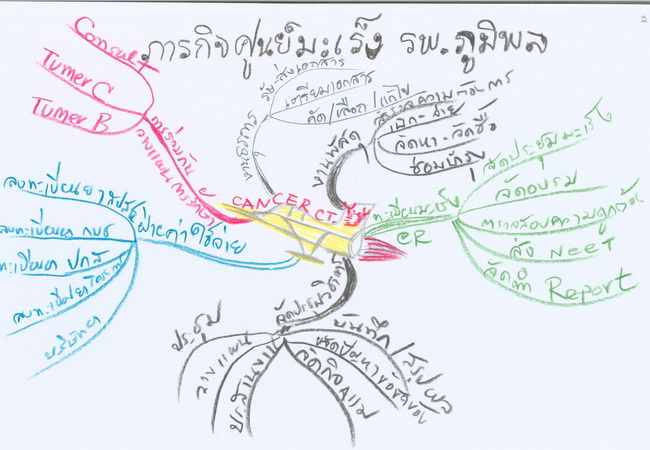 ภารกิจศูนย์มะเร็ง รพ.ภูมิพล
2
Consult
Tumer C
Tumer B
การร่วมกัน
วางแผนการรักษา
รับ-ส่งเอกสาร
เตรียมเอกสาร
คัด/เลือก/แก้ไข
งานเอกสาร
งานพัสดุ
สำรวจความต้องการ
เบิก-จ่าย
จัดหา-จัดซื้อ
ซ่อมบำรุง
CANCER CT.
ทะเบียนมะเร็ง
CR
จัดประชุมมะเร็ง
จัดอบรม
ตรวจสอบความถูกต้อง
ส่ง Neet
จัดทำ Report
ฝ่ายค่าใช้จ่าย
ลงทะเบียนยา
ลงทะเบียนยา กบข
ลงทะเบียนยา ปกส
ลงทะเบียนยา
บริษัทยา
ประชุม
วางแผน
ประสานงาน
จัดกิจกรรม
บันทึก/สรุปผล